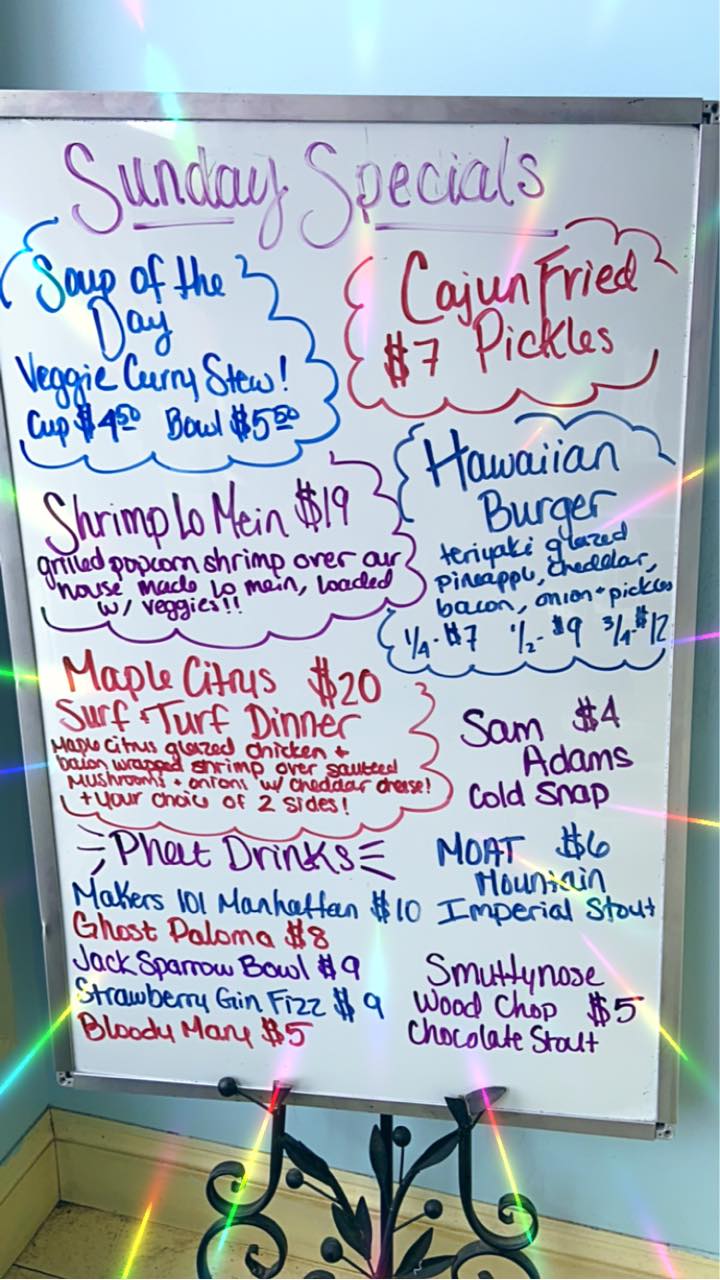 Sunday Specials
Soup of the
Day
Veggie Curry Stew!
Cup $4.50 Bowl $5.50
Cajun Fried
$7 Pickles
Hawaiian
Burger
teriyaki glazed
pineapple, cheddar,
bacon, onion + pickles
1/4-$7 1/2-$9 3/4-$12
Shrimp Lo Mein $19
grilled popcorn shrimp over our
house made lo main, loaded
w/ veggies!!
Maple Citrus $20
Surf + Turf Dinner
Maple citrus glazed chicken +
bacon wrapped shrimp over sauteed
mushrooms + onions w/ cheddar cheese!
+ your choice of 2 sides!
Sam $4
Adams
Cold Snap
Phat Drinks
Makers 101 Manhattan $10
Ghost Paloma $8
Jack Sparrow Bowl $9
Strawberry Gin Fizz $9
Bloody Mary $5
MOAT $6
Mountain
Imperial Stout
Smuttynose
Wood Chop $5
Chocolate Stout